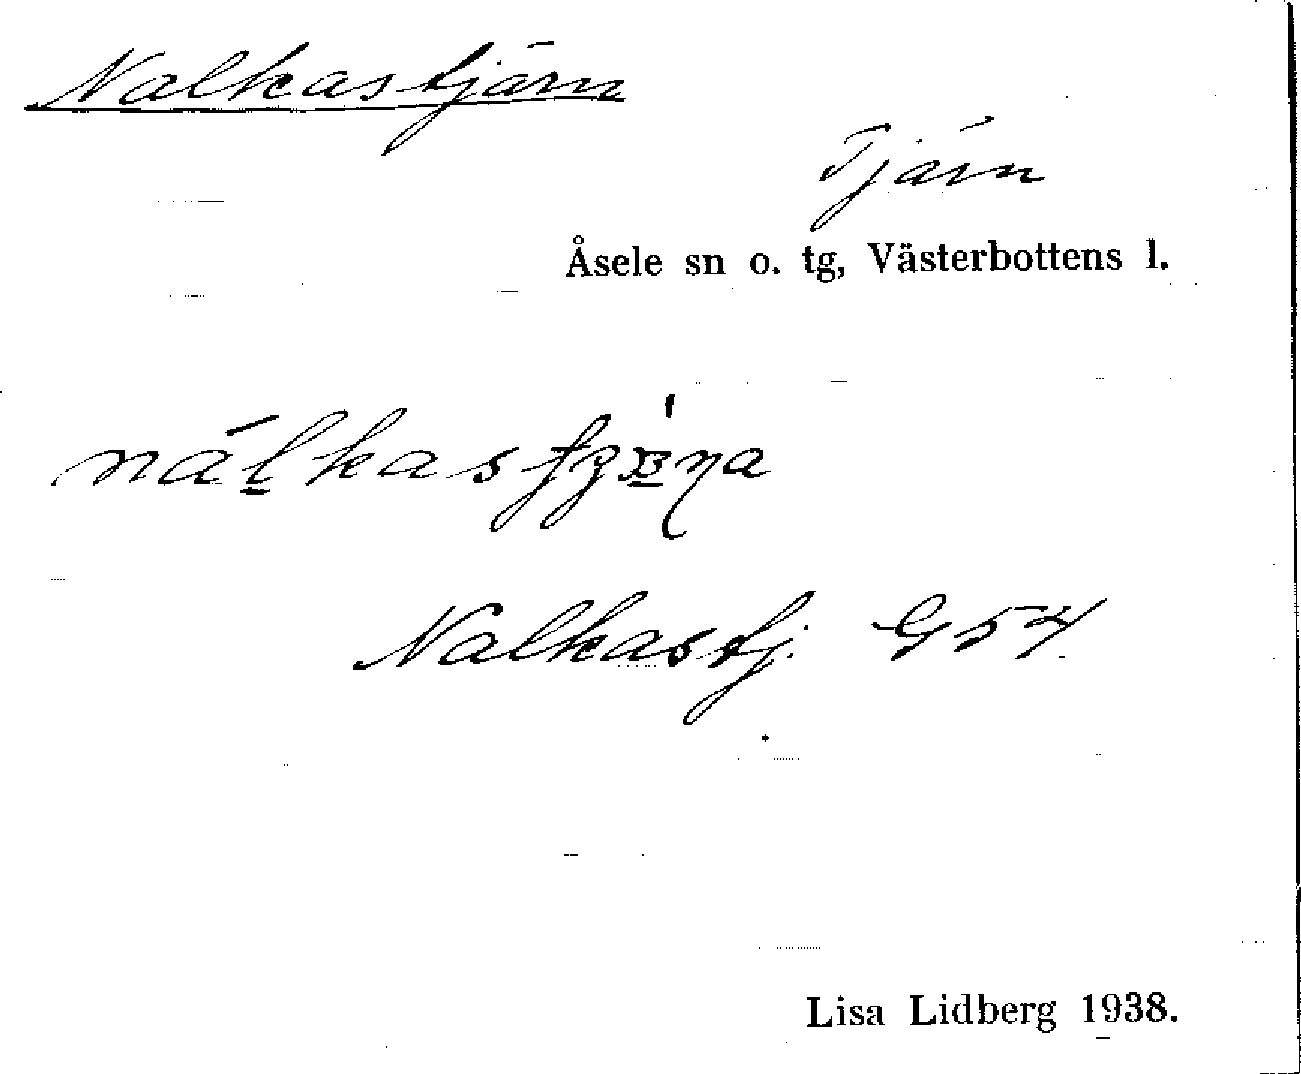 Nalkastjärn
Tjärn
Åsele sn o. tg, Västerbottens l.
Nalkastj. G54
Lisa Lidberg 1938.